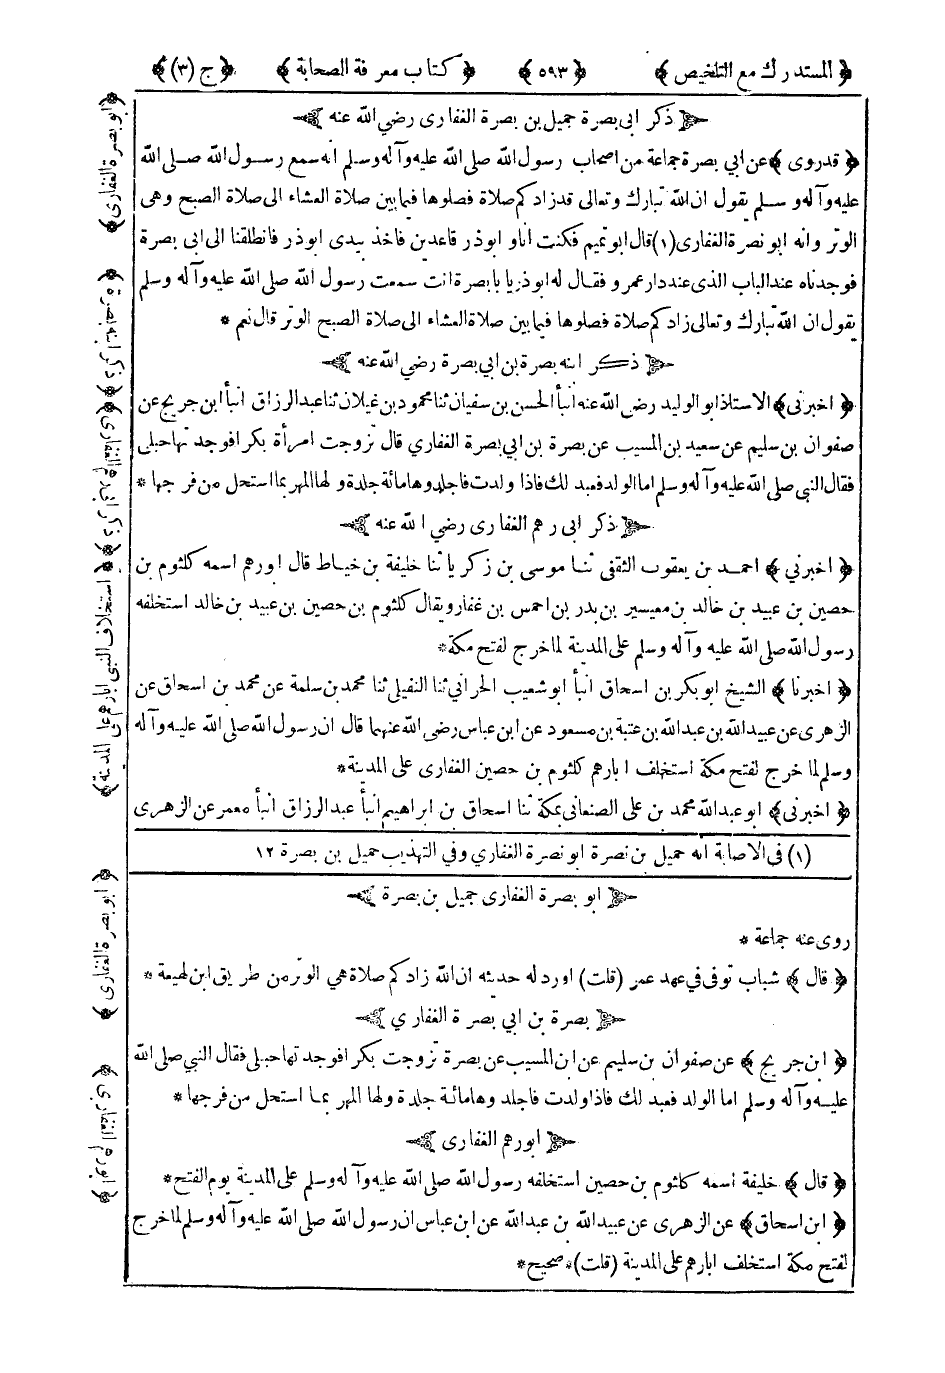 ﴿ المستدرك مع التلخيص ﴾ ﴿ ٥٩٣ ﴾ ﴿ كتاب معرفة الصحابة ﴾ ﴿ ج (٣) ﴾
ذكر ابى بصرة جميل بن بصرة الغفارى رضى الله عنه
﴿ قدروى ﴾ عن ابي بصرة جماعة من اصحاب رسول الله صلى الله عليه وآله وسلم انه سمع رسول الله صلى الله
عليه وآله وسلم يقول ان الله تبارك وتعالى قد زادكم صلاة فصلوها فيما بين صلاة العشاء الى صلاة الصبح وهى
الوتر وانه ابو نصرة الغفارى (١) قال ابو تميم فكنت انا و ابوذر قاعدين فاخذ بيدى ابوذر فانطلقنا الى ابى بصرة
فوجدناه عند الباب الذى عند دار عمرو فقال له ابوذر يا بابصرة انت سمعت رسول الله صلى الله عليه وآله وسلم
يقول ان الله تبارك وتعالى زادكم صلاة فصلوها فيما بين صلاة العشاء الى صلاة الصبح الوتر قال نعم *
ذكر ابنه بصرة بن ابي بصرة رضى الله عنه
﴿ اخبرنى ﴾ الاستاذ ابو الوليد رضى الله عنه انبأ الحسن بن سفيان ثنا محمود بن غيلان ثنا عبد الرزاق انبأ ابن جريج عن
صفوان بن سليم عن سعيد بن المسيب عن بصرة بن ابي بصرة الغفاري قال تزوجت امرأة بكرا فوجدتها حبلى
فقال النبى صلى الله عليه وآله وسلم اما الولد فعبد لك فاذا ولدت فاجلدوها مائة جلدة ولها المهر بما استحل من فرجها *
ذكر ابى رهم الغفارى رضي الله عنه
﴿ اخبرني ﴾ احمد بن يعقوب الثقفى ثنا موسى بن زكريا ثنا خليفة بن خياط قال ابورهم اسمه كلثوم بن
حصين بن عبيد بن خالد بن معيسير بن بدر بن احمس بن غفار ويقال كلثوم بن حصين بن عبيد بن خالد استخلفه
رسول الله صلى الله عليه وآله وسلم على المدينة لما خرج لفتح مكة *
﴿ اخبرنا ﴾ الشيخ ابوبكر بن اسحاق انبأ ابو شعيب الحرانى ثنا النفيلى ثنا محمد بن سلمة عن محمد بن اسحاق عن
الزهرى عن عبيد الله بن عبد الله بن عتبة بن مسعود عن ابن عباس رضى الله عنهما قال ان رسول الله صلى الله عليه وآله
وسلم لما خرج لفتح مكة استخلف ابارهم كلثوم بن حصين الغفارى على المدينة *
﴿ اخبرنى ﴾ ابو عبد الله محمد بن على الصنعانى بمكة ثنا اسحاق بن ابراهيم انبأ عبد الرزاق انبأ معمر عن الزهرى
(١) فى الاصابة انه حميل بن نصرة ابو نصرة الغفاري وفي التهذيب حميل بن بصرة ١٢
ابو بصرة الغفارى جميل بن بصرة
روى عنه جماعة *
﴿ قال ﴾ شباب توفى في عهد عمر (قلت) اورد له حديثه ان الله زادكم صلاة هي الوتر من طريق ابن لهيعة *
بصرة بن ابي بصرة الغفاري
﴿ ابن جريج ﴾ عن صفوان بن سليم عن ابن المسيب عن بصرة تزوجت بكرا فوجدتها حبلى فقال النبي صلى الله
عليه وآله وسلم اما الولد فعبد لك فاذا ولدت فاجلدوها مائة جلدة ولها المهر بما استحل من فرجها *
ابورهم الغفارى
﴿ قال ﴾ خليفة اسمه كلثوم بن حصين استخلفه رسول الله صلى الله عليه وآله وسلم على المدينة يوم الفتح *
﴿ ابن اسحاق ﴾ عن الزهرى عن عبيد الله بن عبد الله عن ابن عباس ان رسول الله صلى الله عليه وآله وسلم لما خرج
لفتح مكة استخلف ابارهم على المدينة (قلت) * صحيح *
﴿ ابو بصرة الغفارى ﴾
﴿ ذكر ابنه بصرة ﴾
﴿ ذكر ابى رهم الغفارى ﴾
﴿ استخلاف النبى ابارهم على المدينة ﴾
﴿ ابو بصرة الغفارى ﴾
﴿ ابورهم الغفارى ﴾